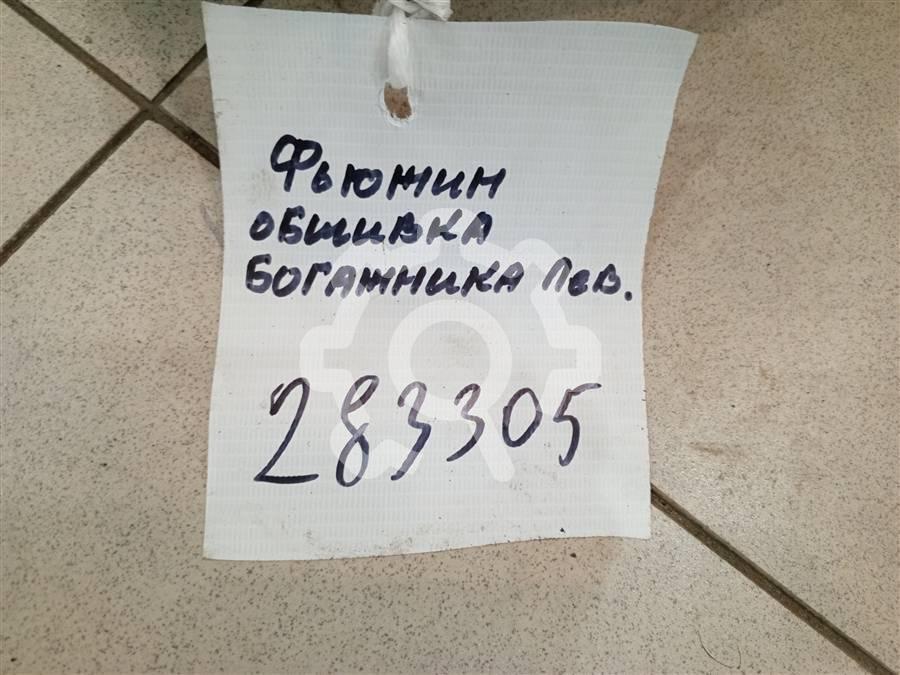 Фьюжин
обшивка
богажника лев.
283305